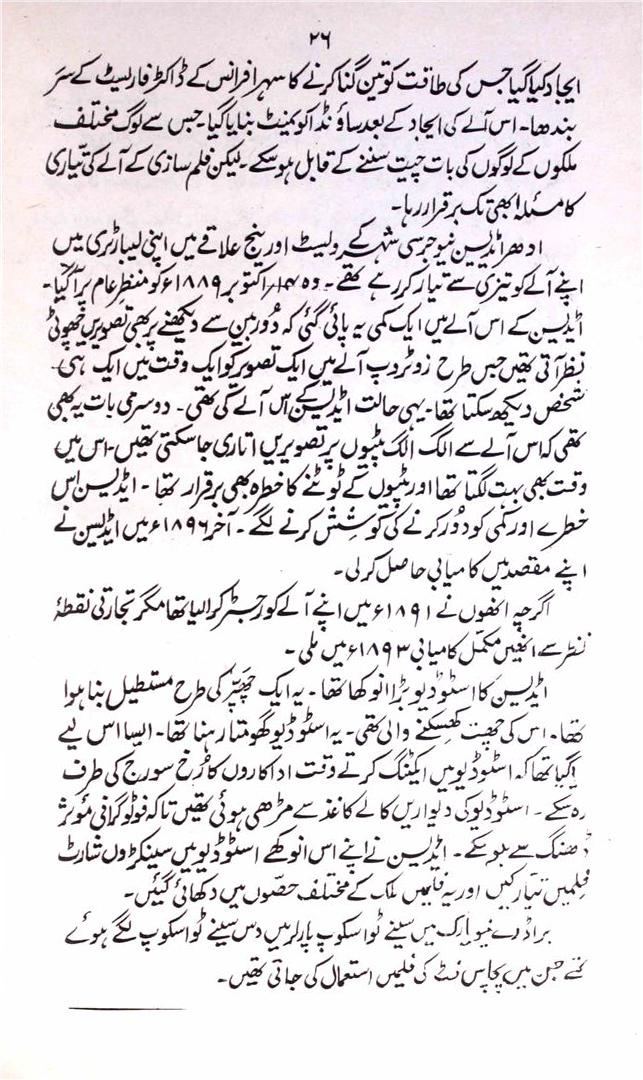 ۲۶
ایجاد کیا گیا جس کی طاقت کو تین گنا کرنے کا سہرا فرانس کے ڈاکٹر فاریسٹ کے سر
بندھا۔ اس آلے کی ایجاد کے بعد ساؤنڈ اکو منٹ بنایا گیا۔ جس سے لوگ مختلف
ملکوں کے لوگوں کی بات چیت سننے کے قابل ہو سکے۔ لیکن فلم سازی کے آلے کی تیاری
کا مسئلہ ابھی تک برقرار رہا۔
ادھر اڈیسن نیو جرسی شہر کے ویسٹ اورینج علاقے میں اپنی لیبارٹری میں
اپنے آلے کو تیزی سے تیار کر رہے تھے۔ وہ ۱۴؍ اکتوبر ۱۸۸۹ء کو منظر عام پر آ گیا۔
اڈیسن کے اس آلے میں ایک کمی یہ پائی گئی کہ دُوربین سے دیکھنے پر بھی تصویریں چھوٹی
نظر آتی تھیں جس طرح زوٹروپ آلے میں ایک تصویر کو ایک وقت میں ایک ہی
شخص دیکھ سکتا تھا۔ یہی حالت اڈیسن کے اس آلے کی تھی۔ دوسری بات یہ بھی
تھی کہ اس آلے سے الگ الگ ٹیپوں پر تصویریں اتاری جا سکتی تھیں۔ اس میں
وقت بھی بہت لگتا تھا اور ٹیپوں کے ٹوٹنے کا خطرہ بھی برقرار تھا۔ اڈیسن اس
خطرے اور کمی کو دُور کرنے کی کوشش کرنے لگے۔ آخر ۱۸۹۶ء میں اڈیسن نے
اپنے مقصد میں کامیابی حاصل کر لی۔
اگرچہ انھوں نے ۱۸۹۱ء میں اپنے آلے کو رجسٹر کرا لیا تھا مگر تجارتی نقطۂ
نظر سے انھیں مکمل کامیابی ۱۸۹۳ء میں ملی۔
اڈیسن کا اسٹوڈیو بڑا انوکھا تھا۔ یہ ایک چھپّر کی طرح مستطیل بنا ہوا
تھا۔ اس کی چھت کھسکنے والی تھی۔ یہ اسٹوڈیو گھومتا رہتا تھا۔ ایسا اس لیے
کیا گیا تھا کہ اسٹوڈیو میں ایکٹنگ کرتے وقت اداکاروں کا رُخ سورج کی طرف
رہ سکے۔ اسٹوڈیو کی دیواریں کالے کاغذ سے مڑھی ہوئی تھیں تاکہ فوٹوگرافی مؤثر
ڈھنگ سے ہو سکے۔ اڈیسن نے اپنے اس انوکھے اسٹوڈیو میں سینکڑوں شارٹ
فلمیں تیار کیں اور یہ فلمیں ملک کے مختلف حصّوں میں دکھائی گئیں۔
براڈوے نیویارک میں سینے ٹو اسکوپ پارلر میں دس سینے ٹو اسکوپ لگے ہوئے
تھے جن میں پچاس فٹ کی فلمیں استعمال کی جاتی تھیں۔